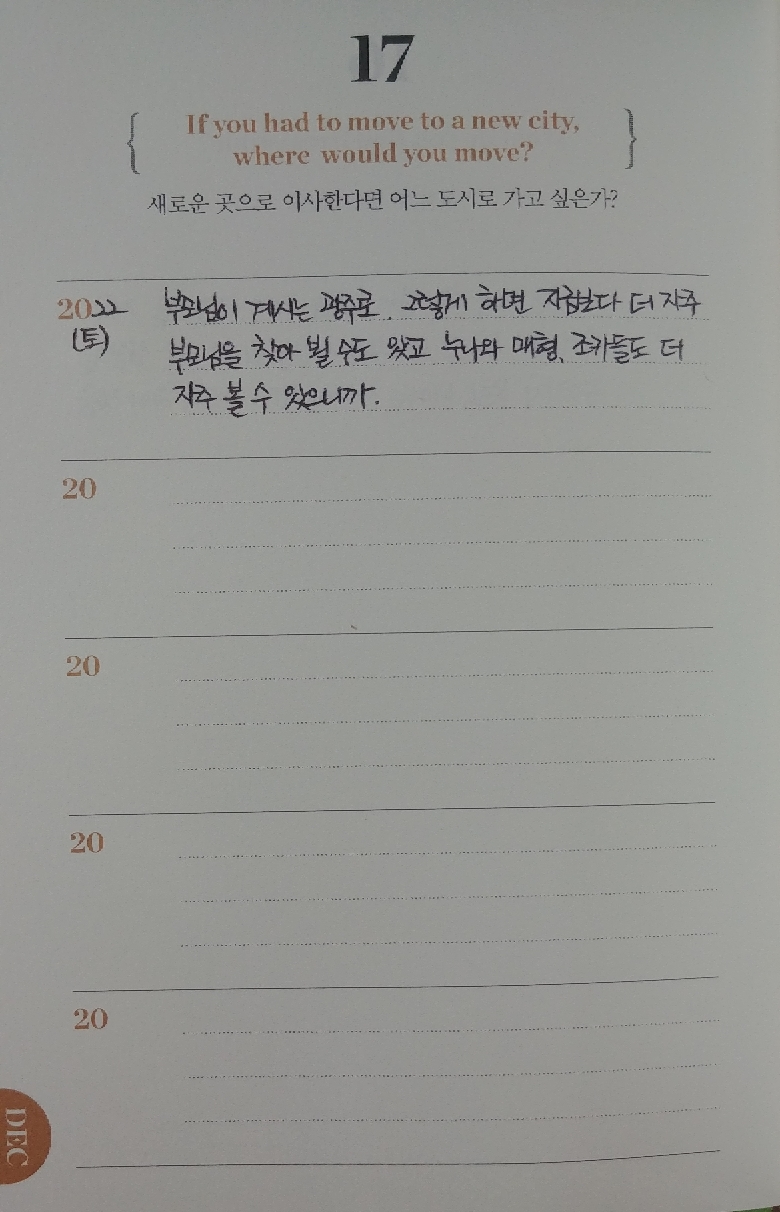 17
If you had to move to a new city,
where would you move?
새로운 곳으로 이사한다면 어느 도시로 가고 싶은가?
2022 부모님이 계시는 광주로. 그렇게 하면 지금보다 더 자주
(토) 부모님을 찾아 뵐 수도 있고 누나와 매형, 조카들도 더
자주 볼 수 있으니까.
20
20
20
20
DEC